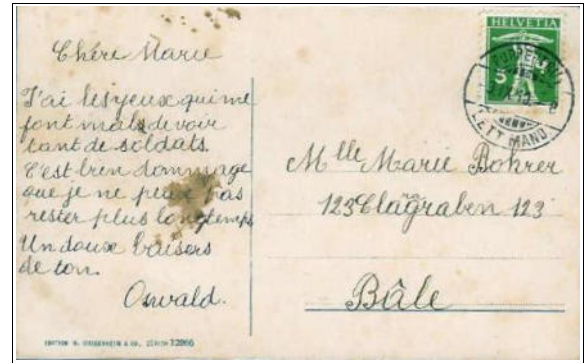 Chère Marie
J'ai les yeux qui me
font mals de voir
tant de soldats.
C'est bien dommage
que je ne peux pas
rester plus longtemps
Un doux baisers
de ton.
Oswald.
HELVETIA
5
Mlle Marie Bohrer
123 Clagraben 123
Bâle
12966